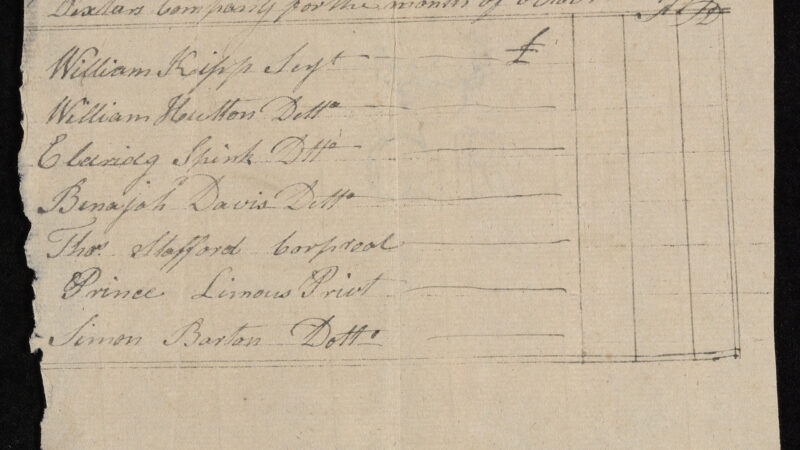 Dexters Company for the month of
William Kipp Serjt £
William Hutton Ditto
Eldridg Spink Ditto
Benajah Davis Ditto
Thos Stafford Corproal
Prince Limous Privt
Simon Barton Dotto